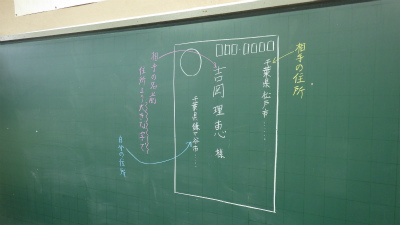 相手の住所
千葉県松戸市……
吉岡理恵 様
千葉県鎌ヶ谷市……
相手の名前
住所より大きな字で
自分の住所